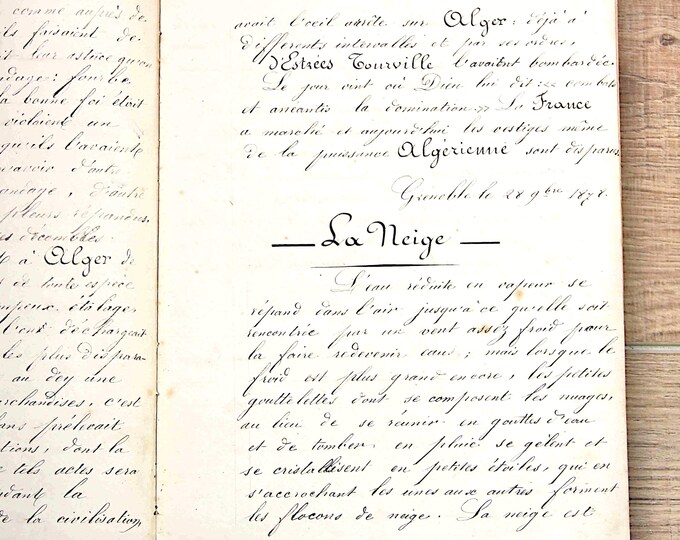 comme auprès de
ils faisaient de
it leur astuce qu'on
dage: fourbe
a bonne foi était
violaient un
qu'ils l'avaient
avoir d'autre
ondage, d'autre
pleurs répandus,
es décombres
à Alger de
s de toute espèce
mpeux étalage,
l'ont déchargeait
les plus dispara-
au dey une
rchandises, c'est
ans prélevait
tions, dont la
e tels actes sera
ndant la
de la civilisation,
avait l'oeil arrêté sur Alger: déjà à
différents intervalles et par ses ordres,
d'Estrées Tourville l'avaient bombardée.
Le jour vint où Dieu lui dit: << combats
et anéantis la domination. >> La France
a marché et aujourd'hui les vestiges même
de la puissance Algérienne sont disparus.
Grenoble le 28 9bre 1878.
— La Neige —
L'eau réduite en vapeur se
répand dans l'air jusqu'à ce qu'elle soit
rencontrée par un vent assez froid pour
la faire redevenir eau; mais lorsque le
froid est plus grand encore, les petites
gouttelettes dont se composent les nuages,
au lieu de se réunir en gouttes d'eau
et de tomber en pluie se gèlent et
se cristallisent en petites étoiles, qui en
s'accrochant les unes aux autres forment
les flocons de neige. La neige est